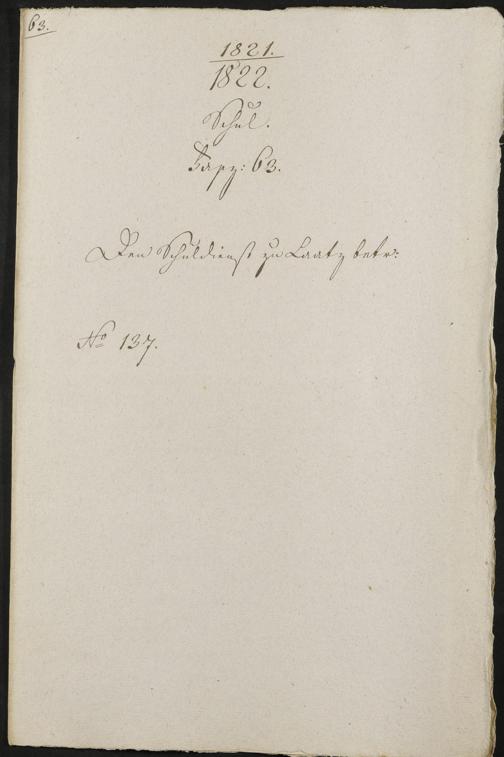 63.
1821.
1822.
Schul.
Fapz: 63.
Den Schuldienst zu Laatz betr:
No 137.